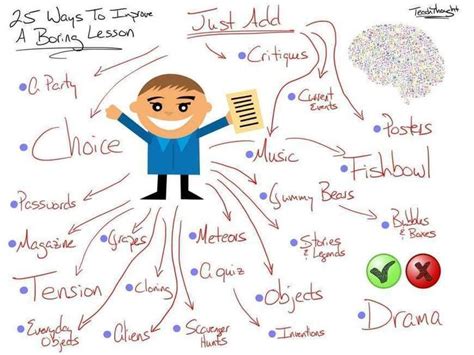 25 Ways To Improve
A Boring Lesson
Just Add
TeachThought
Critiques
A Party
Current
Events
Posters
Choice
Music
Fishbowl
Gummy Bears
Passwords
Bubbles
& Boxes
Magazine
Grapes
Meteors
Stories
& Legends
A quiz
Tension
Cloning
Objects
Drama
Everyday
Objects
Aliens
Scavenger
Hunts
Inventions